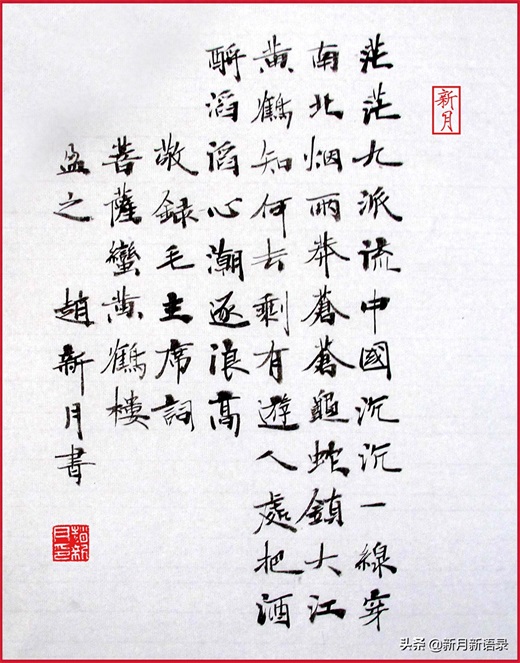 新月
茫茫九派流中國沉沉一線穿
南北烟雨莽蒼蒼龜蛇鎮大江
黄鶴知何去剩有遊人處把酒
酹滔滔心潮逐浪高
敬録毛主席詞
菩薩蠻黄鶴樓
盈之 趙新月書
趙新月印
头条 @新月新语录